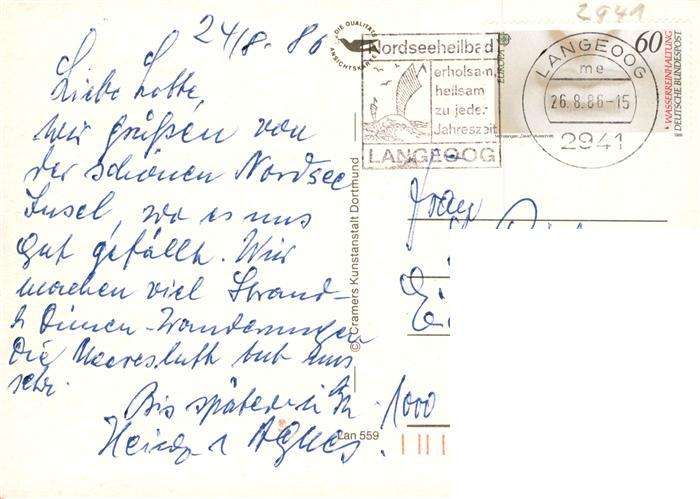 24/8. 86
Liebe Lotte,
Wir grüßen von
der schönen Nordsee
Insel, wo es uns
gut gefällt. Wir
machen viel Strand-
& Dünen-Wanderungen
Die Meeresluft tut uns
sehr.
Bis später in
Heinz u Agnes.
DIE QUALITÄTS
ANSICHTSKARTE
© Cramers Kunstanstalt Dortmund
Lan 559
2941
Nordseeheilbad
erholsam,
heilsam
zu jeder
Jahreszeit
LANGEOOG
EUROPA
60
WASSERREINHALTUNG
DEUTSCHE BUNDESPOST
LANGEOOG
me
26.8.86-15
2941
Frau
1000